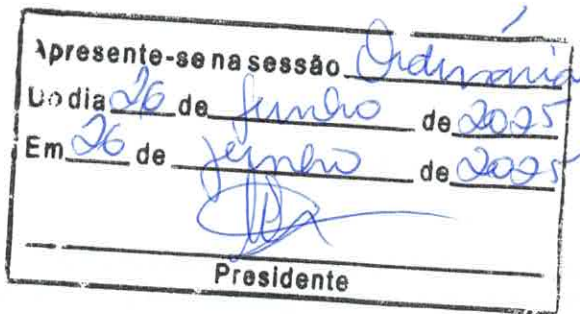 Apresente-se na sessão Ordinária
Do dia 26 de junho de 2025
Em 26 de junho de 2025
Presidente